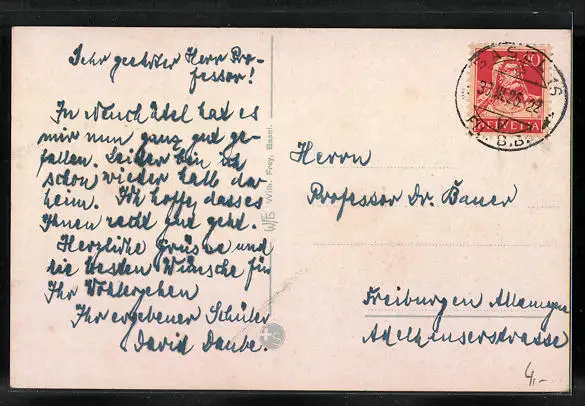 Sehr geehrter Herr Pro-
fessor!
In Neuchâtel hat es
mir nun ganz gut ge-
fallen. Leider bin ich
schon wieder halb da-
heim. Ich hoffe, dass es
Ihnen recht gut geht.
Herzliche Grüsse und
die besten Wünsche für
Ihr Wohlergehen
Ihr ergebener Schüler
David Daube.
WFB Wilh. Frey, Basel.
HELVETIA
BASEL
S.B.B.
Herrn
Professor Dr. Bauer
Freiburgen Allemagne
4,-